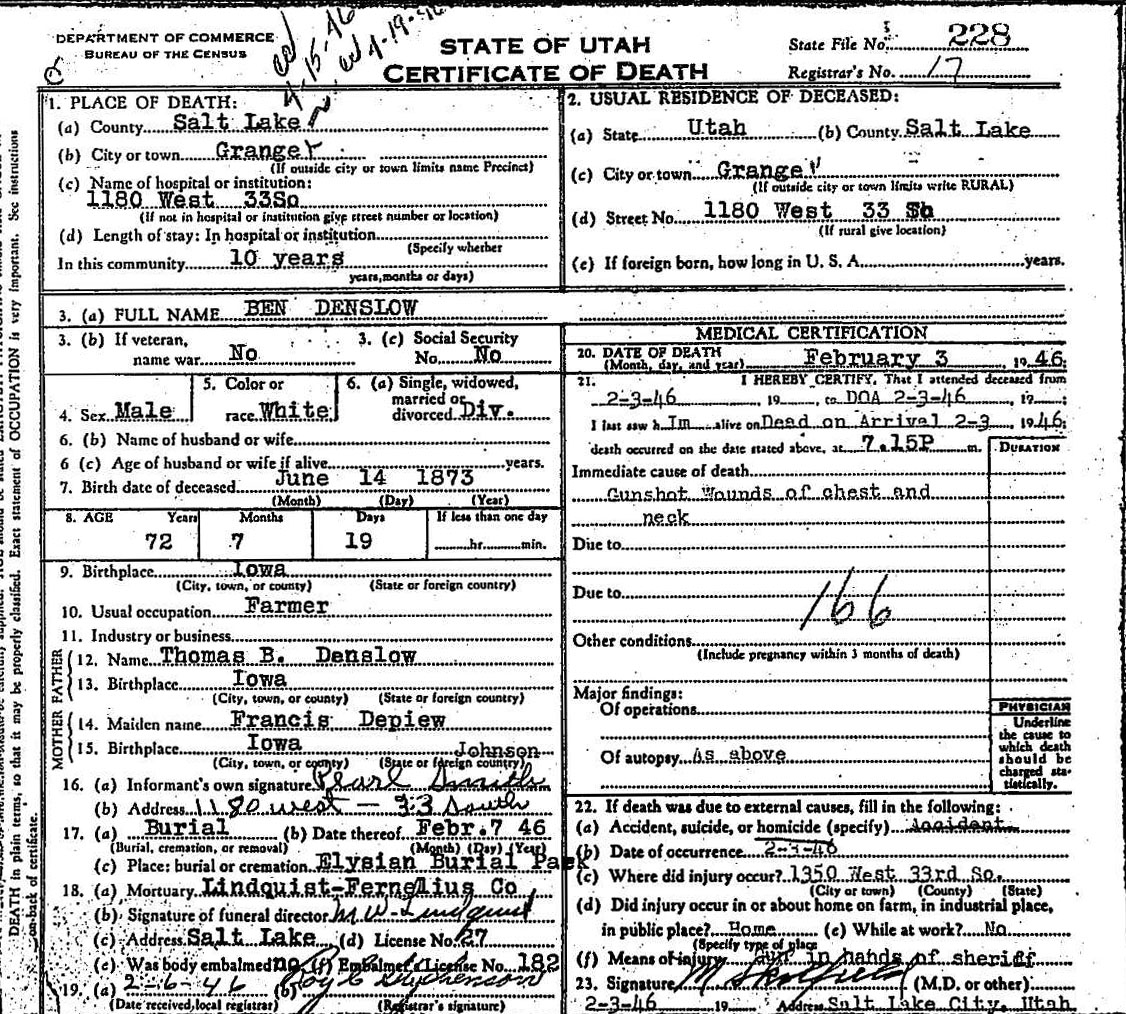 DEPARTMENT OF COMMERCE
BUREAU OF THE CENSUS
cd 4-15-46
cd 4-19-46
STATE OF UTAH
CERTIFICATE OF DEATH
State File No. 228
Registrar's No. 17
1. PLACE OF DEATH:
(a) County Salt Lake
(b) City or town Granger
(If outside city or town limits name Precinct)
(c) Name of hospital or institution:
1180 West 33So
(If not in hospital or institution give street number or location)
(d) Length of stay: In hospital or institution
(Specify whether
In this community 10 years
years, months or days)
2. USUAL RESIDENCE OF DECEASED:
(a) State Utah (b) County Salt Lake
(c) City or town Granger
(If outside city or town limits write RURAL)
(d) Street No. 1180 West 33 So
(If rural give location)
(e) If foreign born, how long in U. S. A. years.
3. (a) FULL NAME BEN DENSLOW
3. (b) If veteran, name war No
3. (c) Social Security No. No
4. Sex Male
5. Color or race White
6. (a) Single, widowed, married or divorced Div.
6. (b) Name of husband or wife
6 (c) Age of husband or wife if alive years.
7. Birth date of deceased June 14 1873
(Month) (Day) (Year)
8. AGE Years Months Days If less than one day
72 7 19 hr. min.
9. Birthplace Iowa
(City, town, or county) (State or foreign country)
10. Usual occupation Farmer
11. Industry or business
FATHER
12. Name Thomas B. Denslow
13. Birthplace Iowa
(City, town, or county) (State or foreign country)
MOTHER
14. Maiden name Francis Depiew
15. Birthplace Iowa
(City, town, or county) (State or foreign country)
Johnson
16. (a) Informant's own signature Pearl Smith
(b) Address 1180 west - 33 South
17. (a) Burial (b) Date thereof Febr. 7 46
(Burial, cremation, or removal) (Month) (Day) (Year)
(c) Place: burial or cremation Elysian Burial Park
18. (a) Mortuary Lindquist-Fernelius Co
(b) Signature of funeral director M. W. Lindquist
(c) Address Salt Lake (d) License No. 27
(e) Was body embalmed no (f) Embalmer's License No. 182
19. (a) 2-6-46 (b) Roy C Stephenson
(Date received, local registrar) (Registrar's signature)
MEDICAL CERTIFICATION
20. DATE OF DEATH
(Month, day, and year) February 3, 1946
21. I HEREBY CERTIFY, That I attended deceased from
2-3-46, 19, to DOA 2-3-46, 19;
I last saw h Im alive on Dead on Arrival 2-3, 1946;
death occurred on the date stated above, at 7.15P m.
DURATION
Immediate cause of death
Gunshot Wounds of chest and
neck
Due to
Due to
166
Other conditions
(Include pregnancy within 3 months of death)
Major findings:
Of operations
Of autopsy As above
PHYSICIAN
Underline
the cause to
which death
should be
charged sta-
tistically.
22. If death was due to external causes, fill in the following:
(a) Accident, suicide, or homicide (specify) Accident
(b) Date of occurrence 2-3-46
(c) Where did injury occur? 1350 West 33rd So.
(City or town) (County) (State)
(d) Did injury occur in or about home on farm, in industrial place,
in public place? Home (e) While at work? No
(Specify type of place
(f) Means of injury Gun in hands of sheriff
23. Signature (M.D. or other)
2-3-46 19 Address Salt Lake City, Utah
DEATH in plain terms, so that it may be properly classified. Exact statement of OCCUPATION is very important. See instruction
on back of certificate.